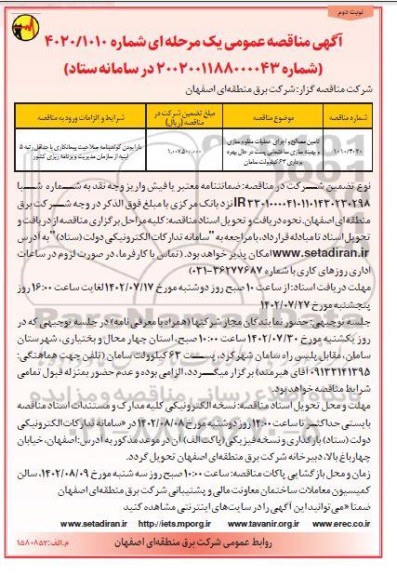 نوبت دوم
آگهی مناقصه عمومی یک مرحله ای شماره ۴۰۲۰/۱۰۱۰
(شماره ۲۰۰۲۰۰۱۱۸۸۰۰۰۰۴۳ در سامانه ستاد)
شرکت مناقصه گزار: شرکت برق منطقه‌ای اصفهان
شماره مناقصه
موضوع مناقصه
مبلغ تضمین شرکت در مناقصه (ریال)
شرایط و الزامات ورود به مناقصه
تامین مصالح و اجرای عملیات مقاوم سازی
و بهینه سازی ساختمانی پست در حال بهره
برداری ۶۳ کیلوولت سامان
دارا بودن گواهینامه صلاحیت پیمانکاری با حداقل رتبه ۵
ابنیه از سازمان مدیریت و برنامه ریزی کشور
نوع تضمین شرکت در مناقصه: ضمانتنامه معتبر یا فیش واریز وجه نقد به شماره شبا
نزد بانک مرکزی با مبلغ فوق الذکر در وجه شرکت برق
منطقه‌ای اصفهان. نحوه دریافت و تحویل اسناد مناقصه: کلیه مراحل برگزاری مناقصه از دریافت و
تحویل اسناد تا مبادله قرارداد، با مراجعه به "سامانه تدارکات الکترونیکی دولت (ستاد)" به آدرس
www.setadiran.ir امکان پذیر خواهد بود. (تماس با کارفرما، در صورت لزوم در ساعات
اداری روزهای کاری با شماره ۳۶۲۷۷۶۸۷-۰۳۱)
مهلت دریافت اسناد: از ساعت ۱۰ صبح روز دوشنبه مورخ ۱۴۰۲/۰۷/۱۷ لغایت ساعت ۱۶:۰۰ روز
پنجشنبه مورخ ۱۴۰۲/۰۷/۲۷
جلسه توجیهی: حضور نمایندگان مجاز شرکتها (همراه با معرفی نامه) در جلسه توجیهی که در
روز یکشنبه مورخ ۱۴۰۲/۰۷/۳۰ ساعت ۱۰:۰۰ صبح، استان چهار محال و بختیاری، شهرستان
سامان، مقابل پلیس راه سامان شهرکرد، پست ۶۳ کیلوولت سامان (تلفن جهت هماهنگی:
۰۹۱۳۲۱۴۱۳۹۵ آقای هنرمند) برگزار میگردد، الزامی بوده و عدم حضور بمنزله قبول تمامی
شرایط مناقصه خواهد بود.
مهلت و محل تحویل اسناد مناقصه: نسخه الکترونیکی کلیه مدارک و مستندات اسناد مناقصه
بایستی حداکثر تا ساعت ۱۴:۰۰ روز دوشنبه مورخ ۱۴۰۲/۰۸/۰۸ در «سامانه تدارکات الکترونیکی
دولت (ستاد) بارگذاری و نسخه فیزیکی (پاکت الف) آن در موعد مذکور به آدرس: اصفهان، خیابان
چهارباغ بالا، دبیرخانه شرکت برق منطقه‌ای اصفهان تحویل گردد.
زمان و محل بازگشایی پاکات مناقصه: ساعت ۱۰:۰۰ صبح روز سه شنبه مورخ ۱۴۰۲/۰۸/۰۹، سالن
کمیسیون معاملات ساختمان معاونت مالی و پشتیبانی شرکت برق منطقه‌ای اصفهان
ضمنا «می‌توانید این آگهی را در سایت‌های اینترنتی مشاهده کنید
www.setadiran.ir http://iets.mporg.ir www.tavanir.org.ir www.erec.co.ir
روابط عمومی شرکت برق منطقه‌ای اصفهان
م.الف: ۱۵۸۰۸۵۲